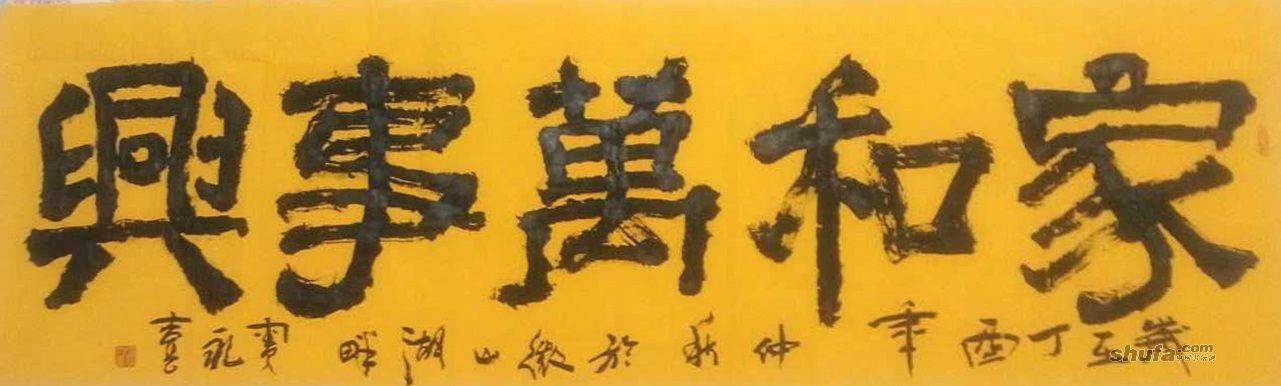 家和萬事興
歲至丁酉年仲秋於微山湖畔
永
shufa.com